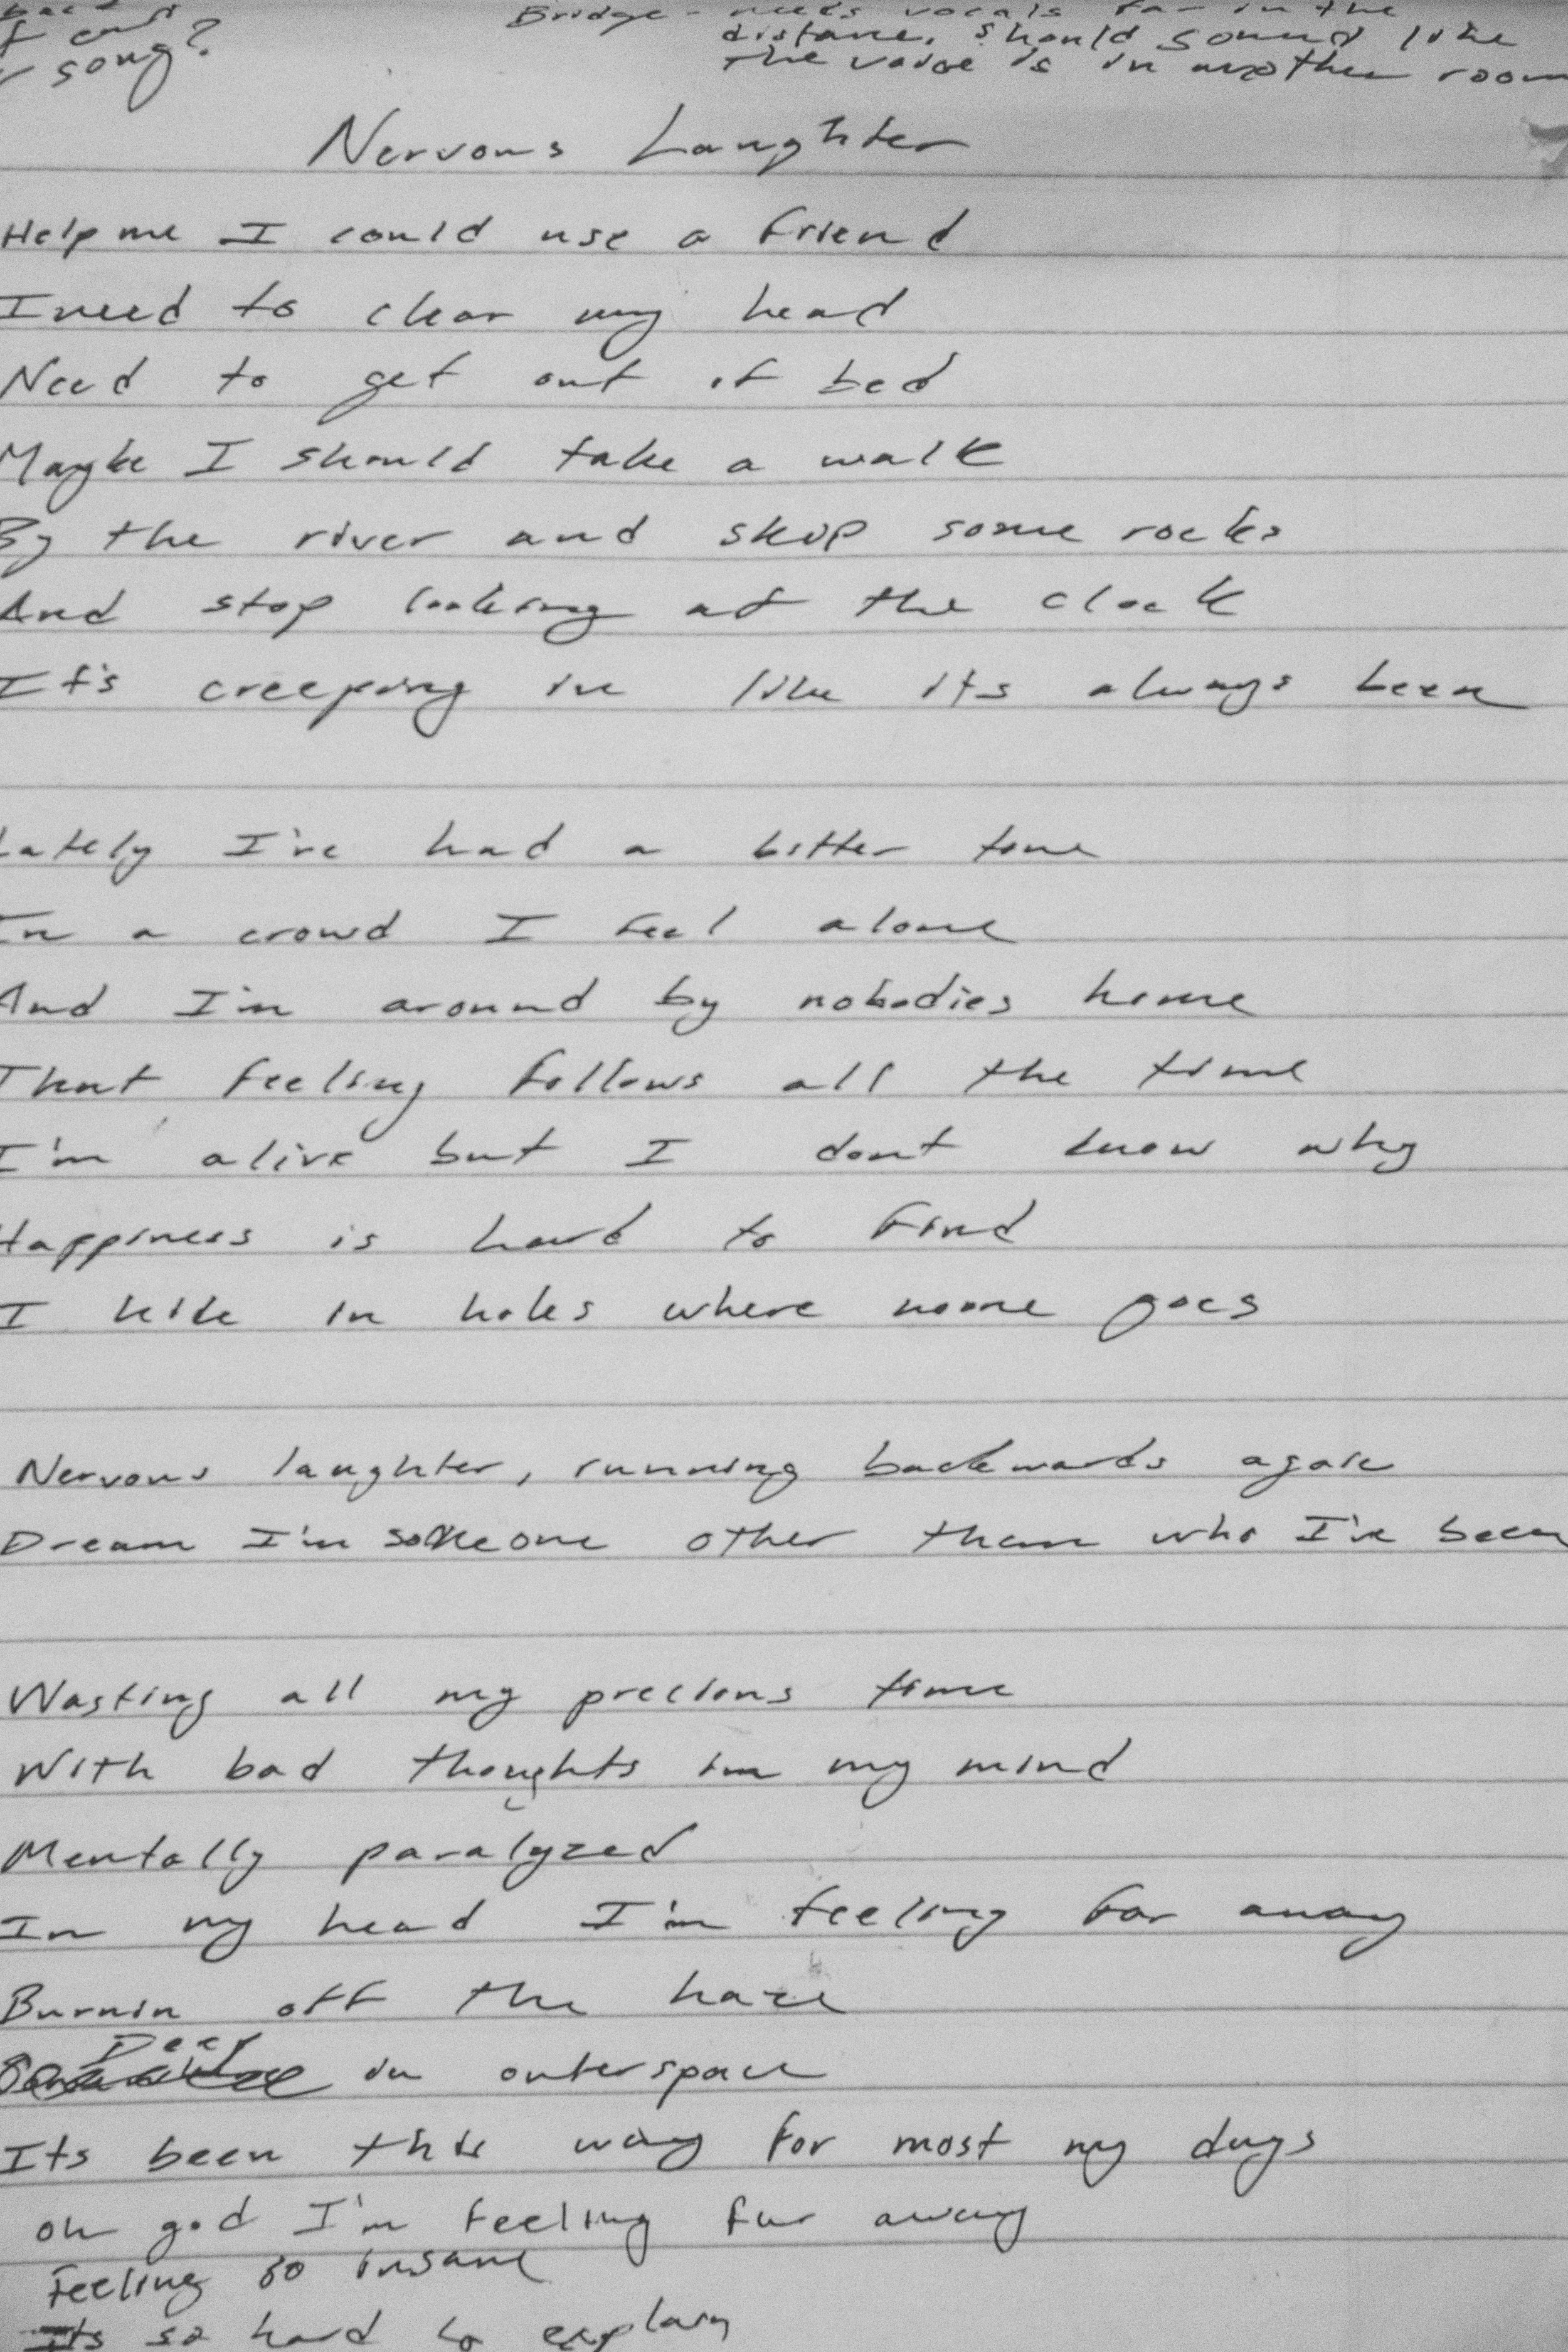 song?
Bridge - needs vocals far in the
distance. should sound like
the voice is in another room
Nervous Laughter
Help me I could use a friend
I need to clear my head
Need to get out of bed
Maybe I should take a walk
By the river and skip some rocks
And stop looking at the clock
It's creeping in like its always been
Lately I've had a bitter tone
In a crowd I feel alone
And I'm around by nobodies home
That feeling follows all the time
I'm alive but I dont know why
Happiness is hard to find
I hide in holes where noone goes
Nervous laughter, running backwards again
Dream I'm someone other than who I've been
Wasting all my precious time
With bad thoughts in my mind
Mentally paralyzed
In my head I'm feeling far away
Burnin off the haze
Deep
in outerspace
Its been this way for most my days
oh god I'm feeling far away
Feeling so insane
Its so hard to explain